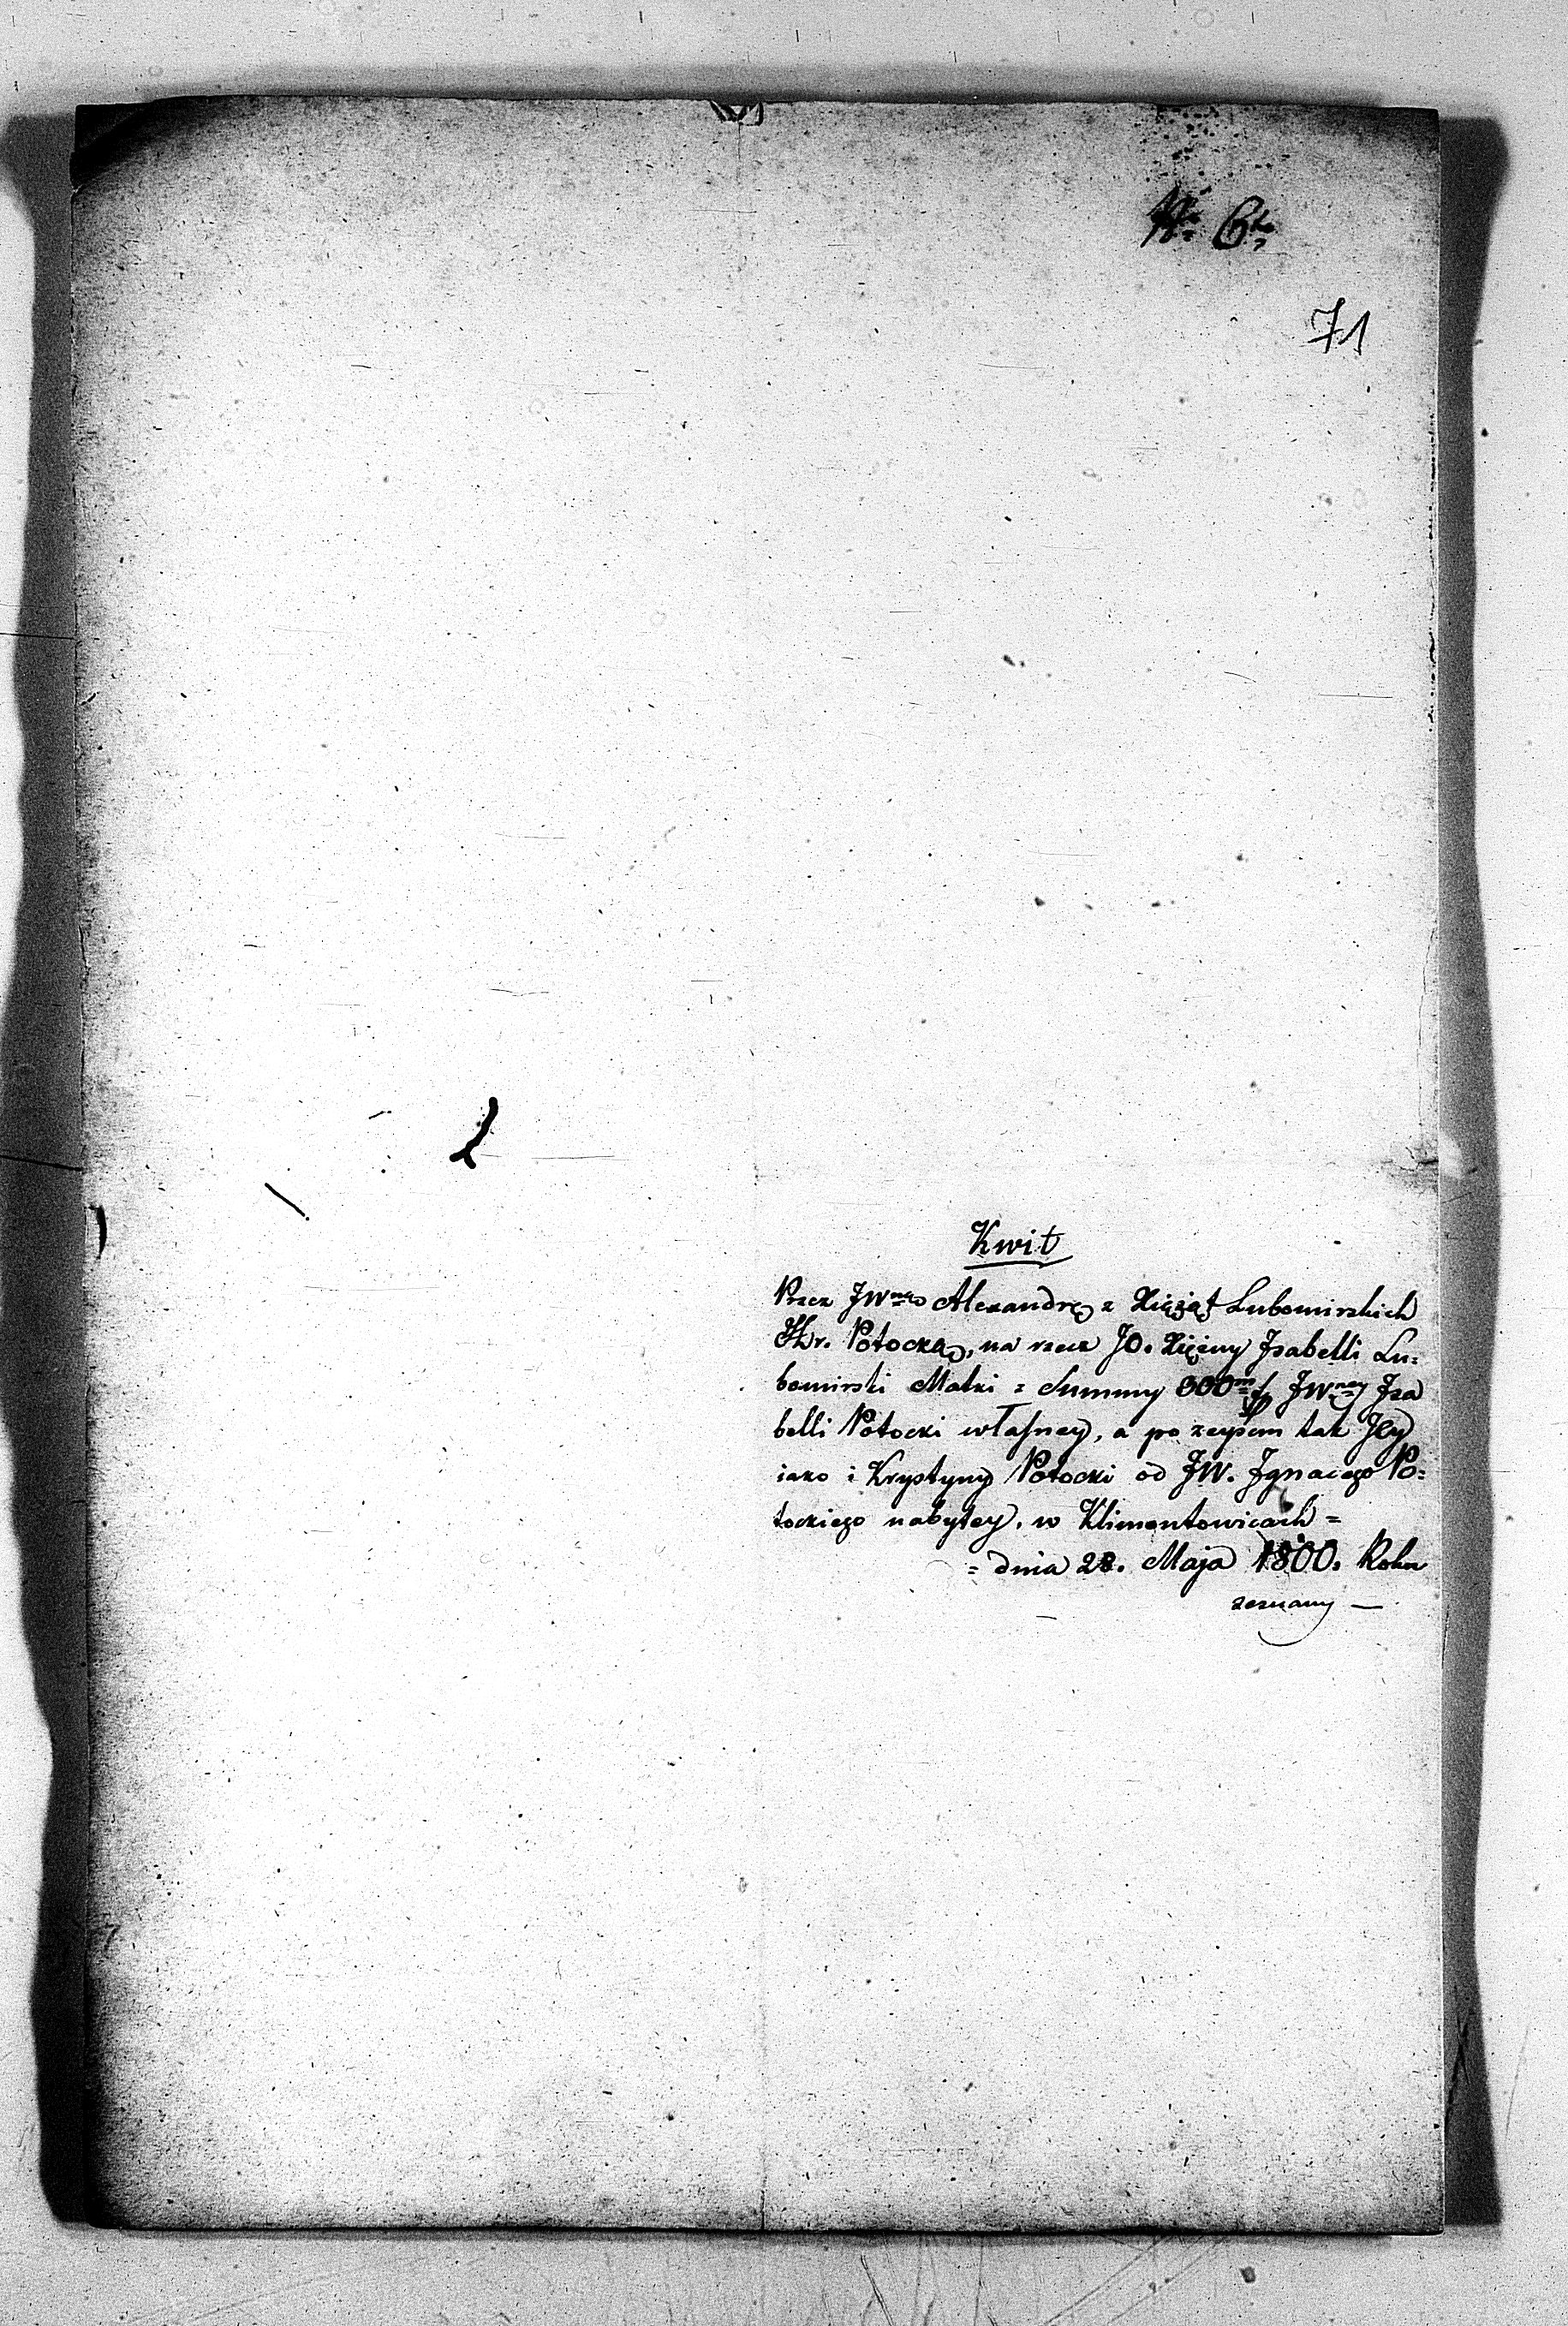 No 6to
71
Kwit
Przez JWną Alexandrę z Xiążąt Lubomirskich
Hr. Potocką, na rzecz JO. Xiężny Izabelli Lu=
bomirski Matki = Summy 300m f JWney Iza
belli Potocki własney, a po zeyściu tak Jey
iako i Krystyny Potocki od JW. Ignacego Po=
tockiego nabytey, w Klimontowicach =
= dnia 28. Maja 1800. Roku
zeznany —